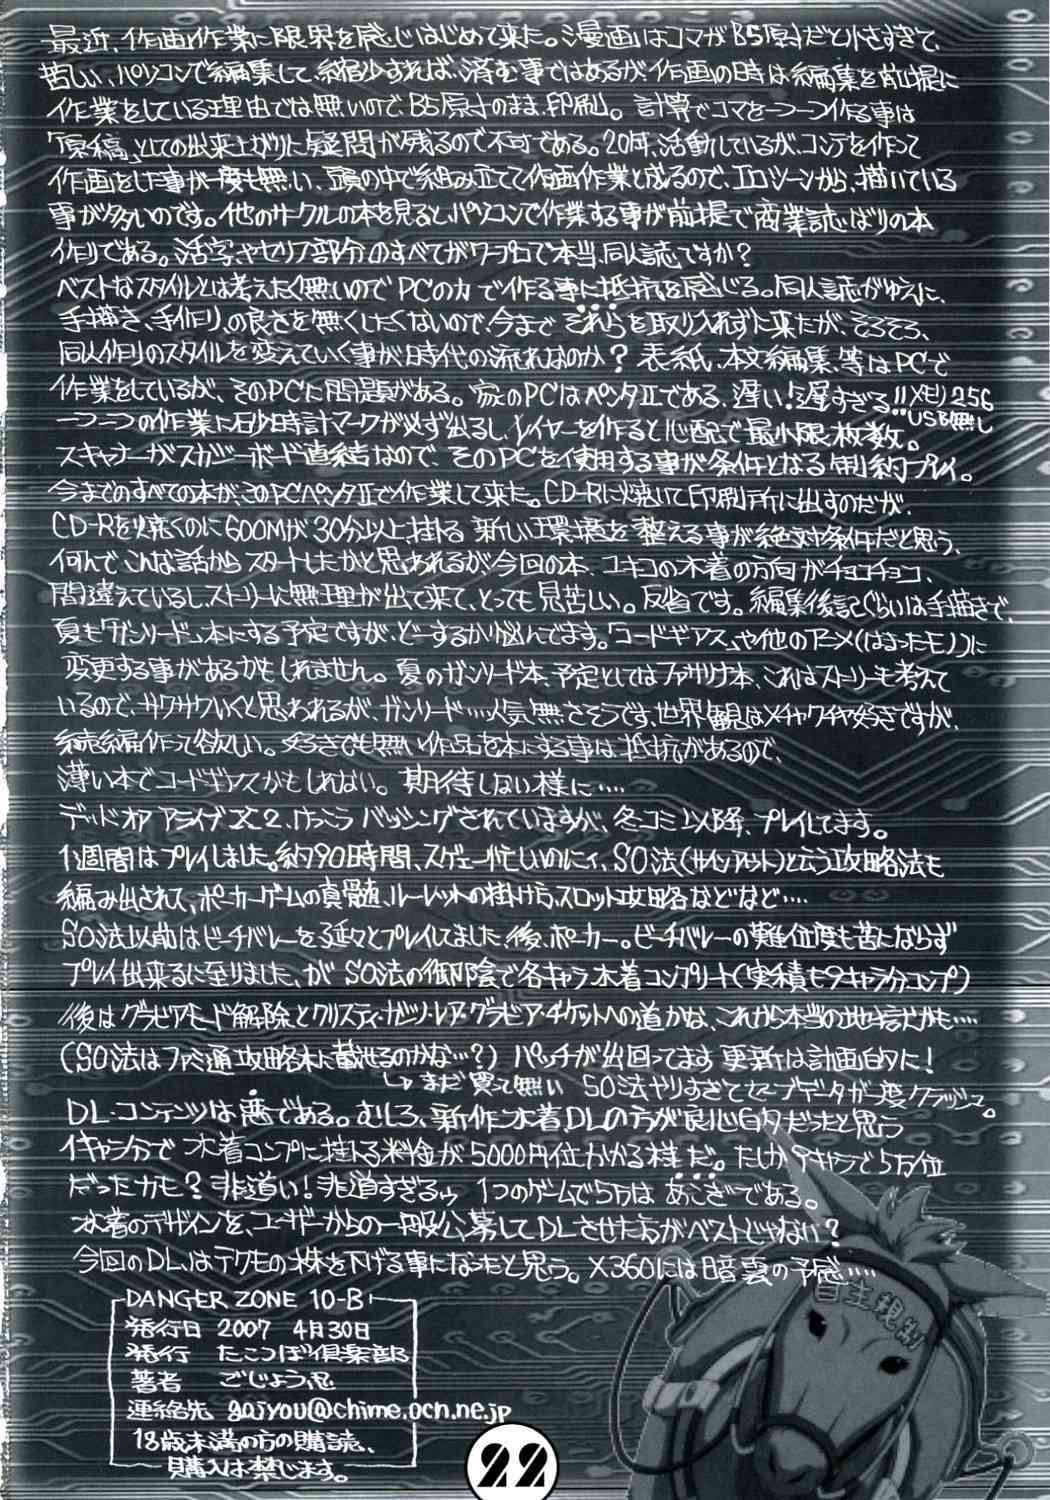 最近、作画作業に限界を感じはじめて来た。漫画はコマがB5原寸だと小さすぎて、
苦しい、パソコンで編集して、縮少すれば、済む事ではあるが、作画の時は編集を前提に
作業をしている理由では無いので、B5原寸のまま、印刷。計算でコマを一つ一つ作る事は
「原稿」としての出来上がりに疑問が残るので不可である。20年、活動しているが、コンテを作って
作画をした事が一度も無い、頭の中で組み立てて作画作業と成るので、エロシーンから、描いている
事が多いのです。他のサークルの本を見ると、パソコンで作業する事が前提で商業誌ばりの本
作りである。活字やセリフ部分のすべてがワープロで本当、同人誌ですか?
ベストなスタイルとは考えたく無いのでPCの力で作る事に抵抗を感じる。同人誌がゆえに、
手描き、手作り、の良さを無くしたくないので、今まで それらを取り入れずに来たが、そろそろ、
同人作りのスタイルを変えていく事が時代の流れなのか? 表紙、本文編集、等はPCで
作業をしているが、そのPCに問題がある。家のPCはペンタⅡである、遅い!遅すぎる!!メモリ256
USB無し
一つ一つの作業に砂時計マークが必ず出るし、レイヤーを作ると心配で最小限枚数。
スキャナーがスカジーボード直結なので、そのPCを使用する事が条件となる制約プレイ。
今までのすべての本が、このPCペンタⅡで作業して来た。CD-Rに焼いて印刷所に出すのだが、
CD-Rを焼くのに600Mが30分以上掛る 新しい環境を整える事が絶対条件だと思う、
何んで、こんな話からスタートしたかと思われるが今回の本、ユキコの水着の方向がチョコチョコ、
間違えているし、ストーリーに無理が出て来て、とっても見苦しい。反省です。編集後記ぐらいは手描きで、
夏も「ガンリード」本にする予定ですが、どーするか悩んでます。「コードギアス」や他のアニメ(はまったモノ)に
変更する事があるかもしれません。夏のガンリード本、予定としてはファサリナ本、これはストーリーも考えて
いるので、サクサクいくと思われるが、ガンリード…人気無さそうです、世界観はメチャクチャ好きですが、
続編作って欲しい。好きでも無い作品を本にする事は抵抗があるので、
薄い本でコードギアスかもしれない。期待しない様に‥‥
デッド オア アライブX2、けっこう バッシングされていますが、冬コミ以降、プレイしてます。
1週間はプレイしました。約90時間、スゲェー忙しいのにィ、SO法(サインアウト)と云う攻略法も
編み出されて、ポーカーゲームの真髄、ルーレットの掛け方、スロット攻略などなど‥‥
SO法以前はビーチバレーを延々とプレイしてました 後、ポーカー。ビーチバレーの難位度も苦にならず
プレイ出来るに至りました、が SO法の御陰で各キャラ水着コンプリート(実積も9キャラ分コンプ)
後はグラビアモード解除とクリスティ・ガッツ・レア・グラビア・チケットへの道かな、これから本当の地獄だかも‥‥
(SO法はファミ通攻略本に載せるのかな…?) パッチが出回ってます 更新は計画的に!
↳まだ買って無い SO法やりすぎてセーブデータが一度クラッシュ。
DL・コンテンツは悪である。むしろ、新作水着、DLの方が良心的だったと思う
1キャラ分で 水着コンプに掛る料金が5000円位かかる様だ。たしか9キャラで5万位
だったカモ? 非道い!非道すぎるッ 1つのゲームで5万は あこぎである。
水着のデザインを、ユーザーからの一般公募してDLさせた方がベストじゃない?
今回のDLはテクモの株を下げる事になったと思う。X360には暗雲の予感‥‥
自主規制
DANGER ZONE 10-B
発行日 2007 4月30日
発行 たこつぼ倶楽部
著者 ごじょう忍
連絡先 gojyou@chime.ocn.ne.jp
18歳未満の方の購読、
購入は禁じます。
22